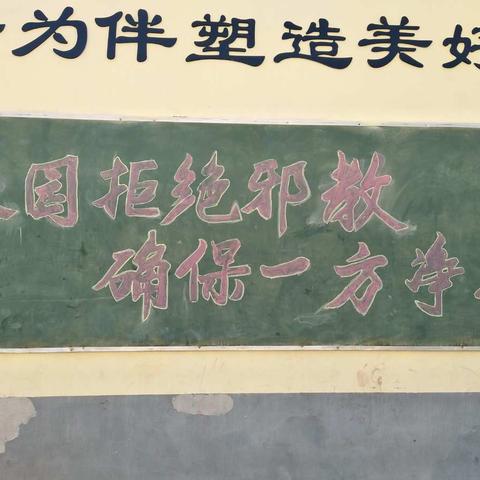 为伴塑造美好
园拒绝邪教
确保一方净